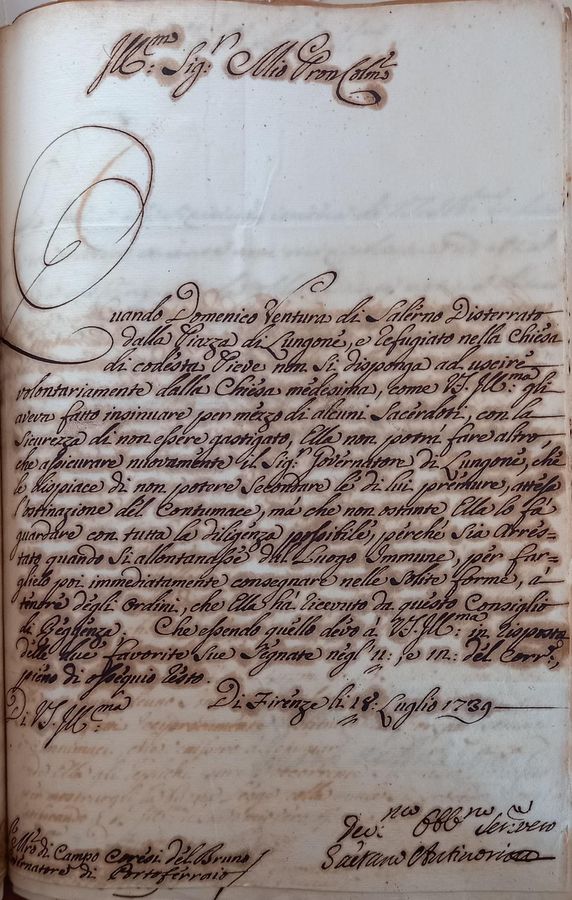 Ill.mo Sig.r Mio Pron Colmo
Quando Domenico Ventura di Salerno Disterrato
dalla Piazza di Lungone, e refugiato nella Chiesa
di codesta Pieve non si disponga ad uscire
volontariamente dalla Chiesa medesima, come VS. Ill.ma gli
aveva fatto insinuare per mezzo di alcuni Sacerdoti, con la
sicurezza di non essere gastigato, Ella non potrà fare altro,
che assicurare nuovamente il Sig.r Governatore di Lungone, che
le dispiace di non potere secondare le di lui premure, attesa
l'ostinazione del Contumace, mà che non ostante Ella lo fà
guardare con tutta la diligenza possibile, perché sia arres-
tato quando si allontanasse dal Luogo Immune, per far-
glielo poi immediatamente consegnare nelle solite forme, a
tenore degli ordini, che Ella hà ricevuto da questo Consiglio
di Reggenza. Che essendo quello devo à VS. Ill.ma in risposta
delle due favorite Sue segnate negl' 11: e 12: del Corr.e,
pieno di ossequio resto
Di VS. Ill.ma Di Firenze li 18: Luglio 1739
Dev.mo Obb.mo Ser.e vero
Gaetano Antinori
Mro di Campo Coresi del Bruno
Governatore di Portoferraio